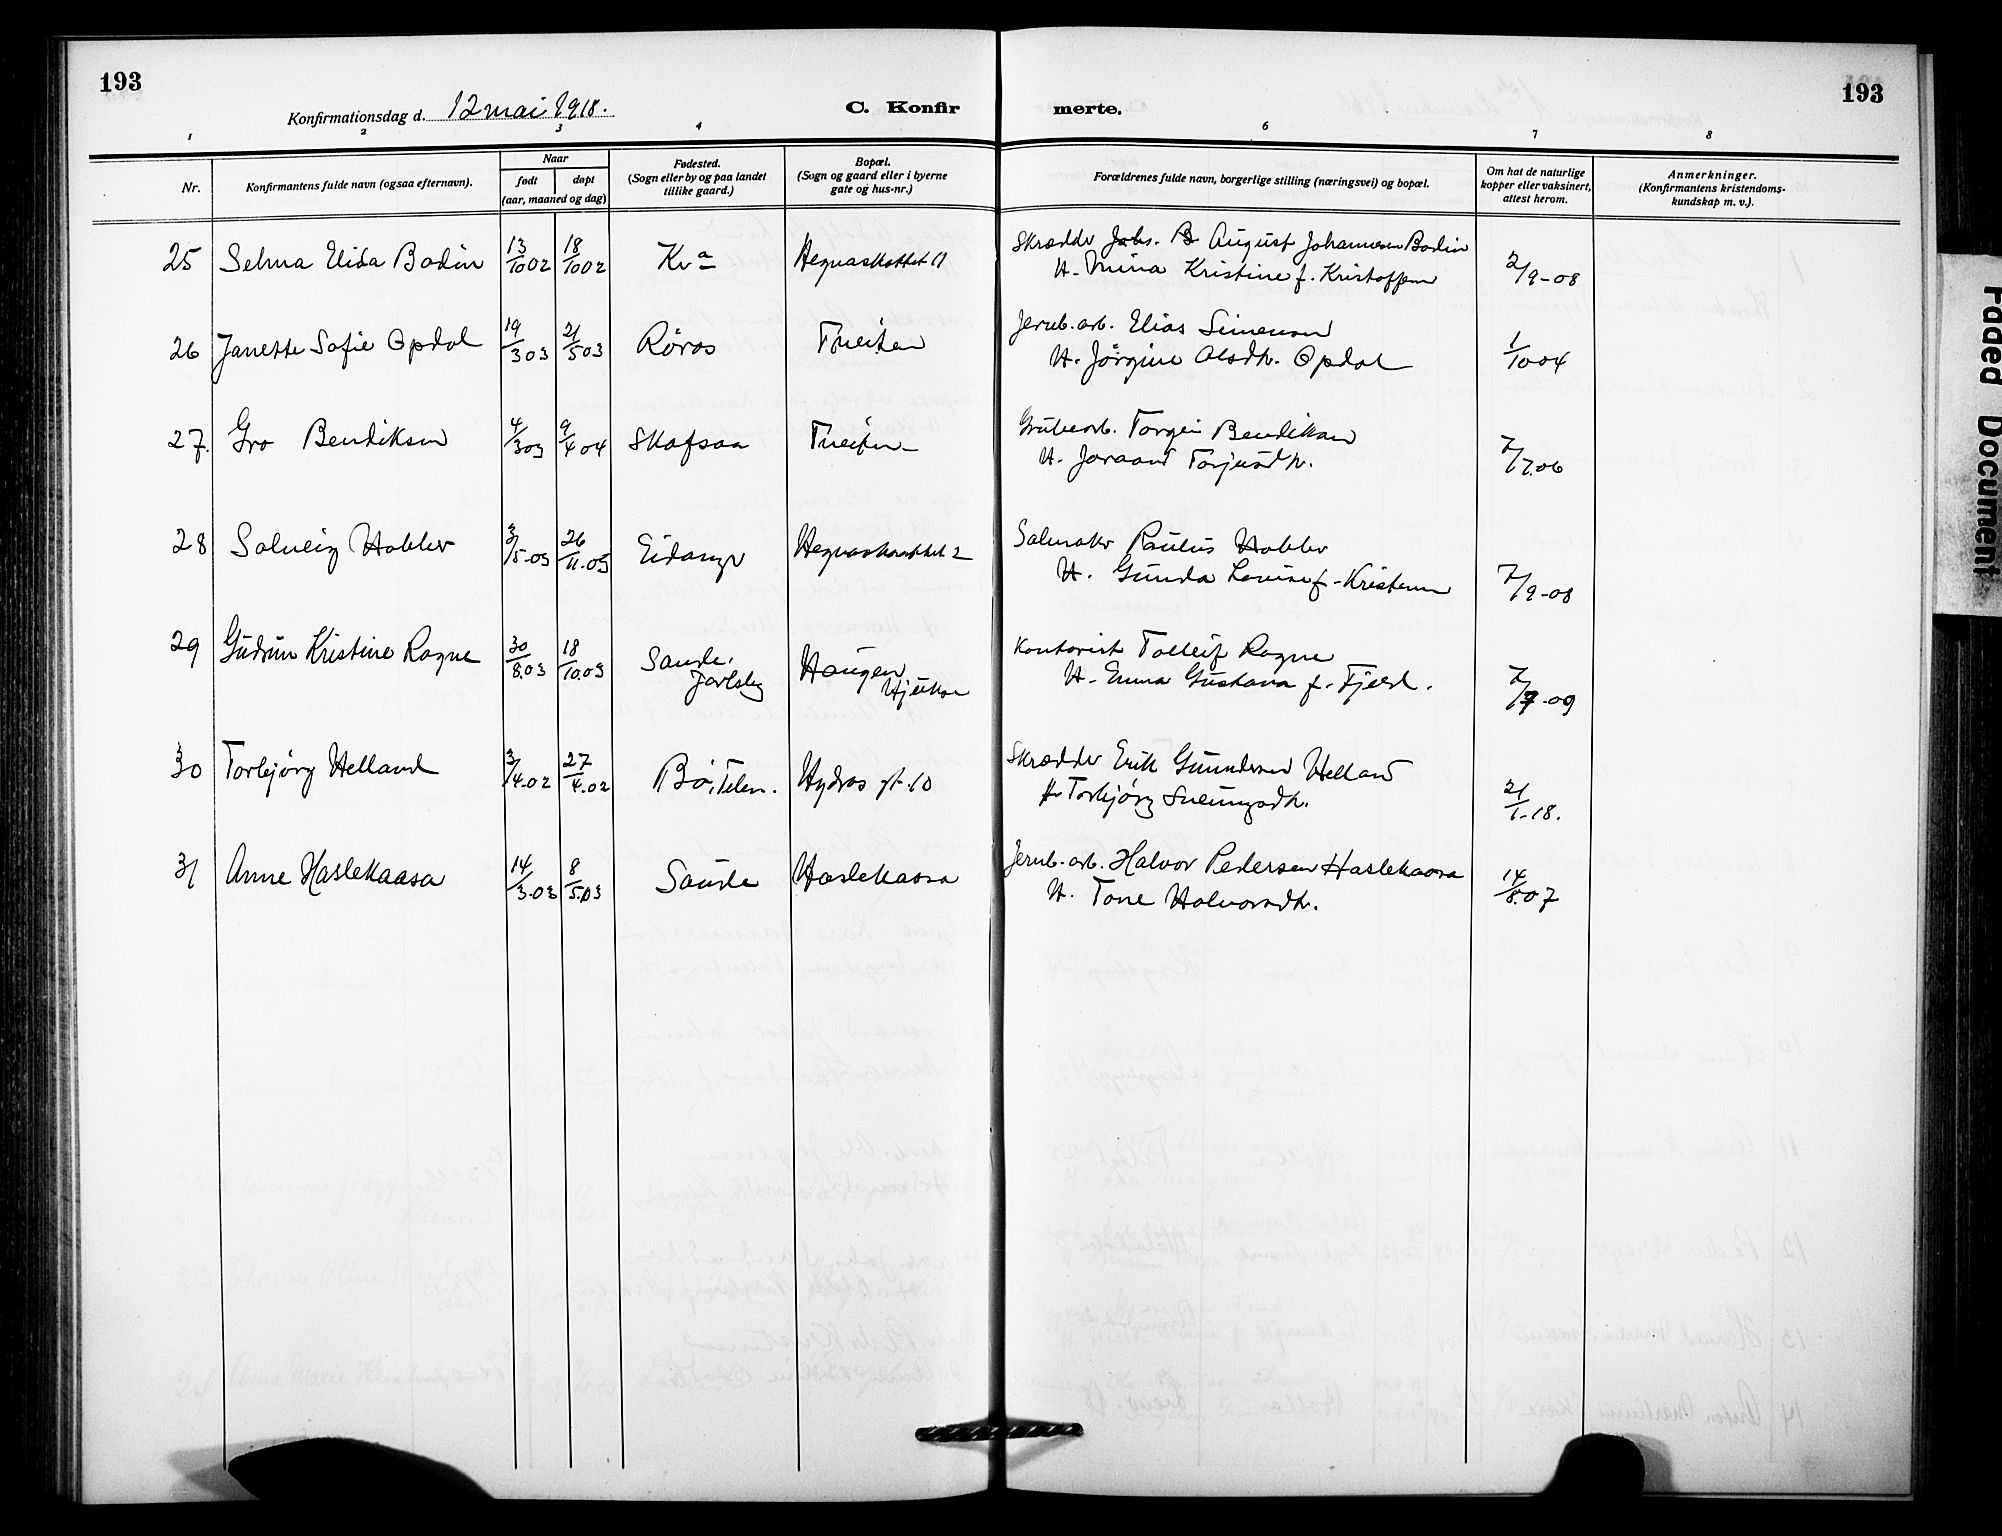 193
193
Konfirmationsdag d. 12 mai 1918.
C. Konfir
merte.
1 2 3 4 6 7 8
Nr.
Konfirmantens fulde navn (ogsaa efternavn).
Naar
født døpt
(aar, maaned og dag)
Fødested.
(Sogn eller by og paa landet
tillike gaard.)
Bopæl.
(Sogn og gaard eller i byerne
gate og hus-nr.)
Forældrenes fulde navn, borgerlige stilling (næringsvei) og bopæl.
Om hat de naturlige
kopper eller vaksinert,
attest herom.
Anmerkninger.
(Konfirmantens kristendoms-
kundskap m. v.).
25 Selma Elida Bodin 13/10 02 18/10 02 Kra Skrædder August Johannesen Bodin
H. Mina Kristine f. Kristoffersen 2/9-08
26 Janette Sofie Opdal 19/3 03 21/5 03 Røros Tveiten Jernb.arb. Elias Simensen
H. Jörgine Olsdtr. Opdal 1/10 04
27. Gro Bendiksen 4/3 03 9/4 04 Skafsaa Tveiten Grubearb. Torgei Bendiksen
H. Joraand Torjusdtr. 7/7.06
28 Solveig Hobler 3/5.03 26/11.03 Eidanger Salmaker Paulus Hobler
H. Gunda Lovise f. Kristensen 7/9-08
29 Gudrun Kristine Ragne 30/8.03 18/10.03 Sande, Haugen Kontorist Tolleif Ragne
Jarlsbg Hjuksa H. Emma Gustava f. Fjeld. 7/7-09
30 Torbjørg Helland 3/4.02 27/4.02 Bø, Telem. Hydros gt. 10 Skrædder Erik Gundersen Helland
H. Torbjörg Sveinungsdtr. 21/1-18.
31 Anne Haslekaasa 14/3.03 8/5.03 Saude Haslekaasa Jernb.arb. Halvor Pedersen Haslekaasa
H. Tone Halvorsdtr. 14/8.07
Faded Document